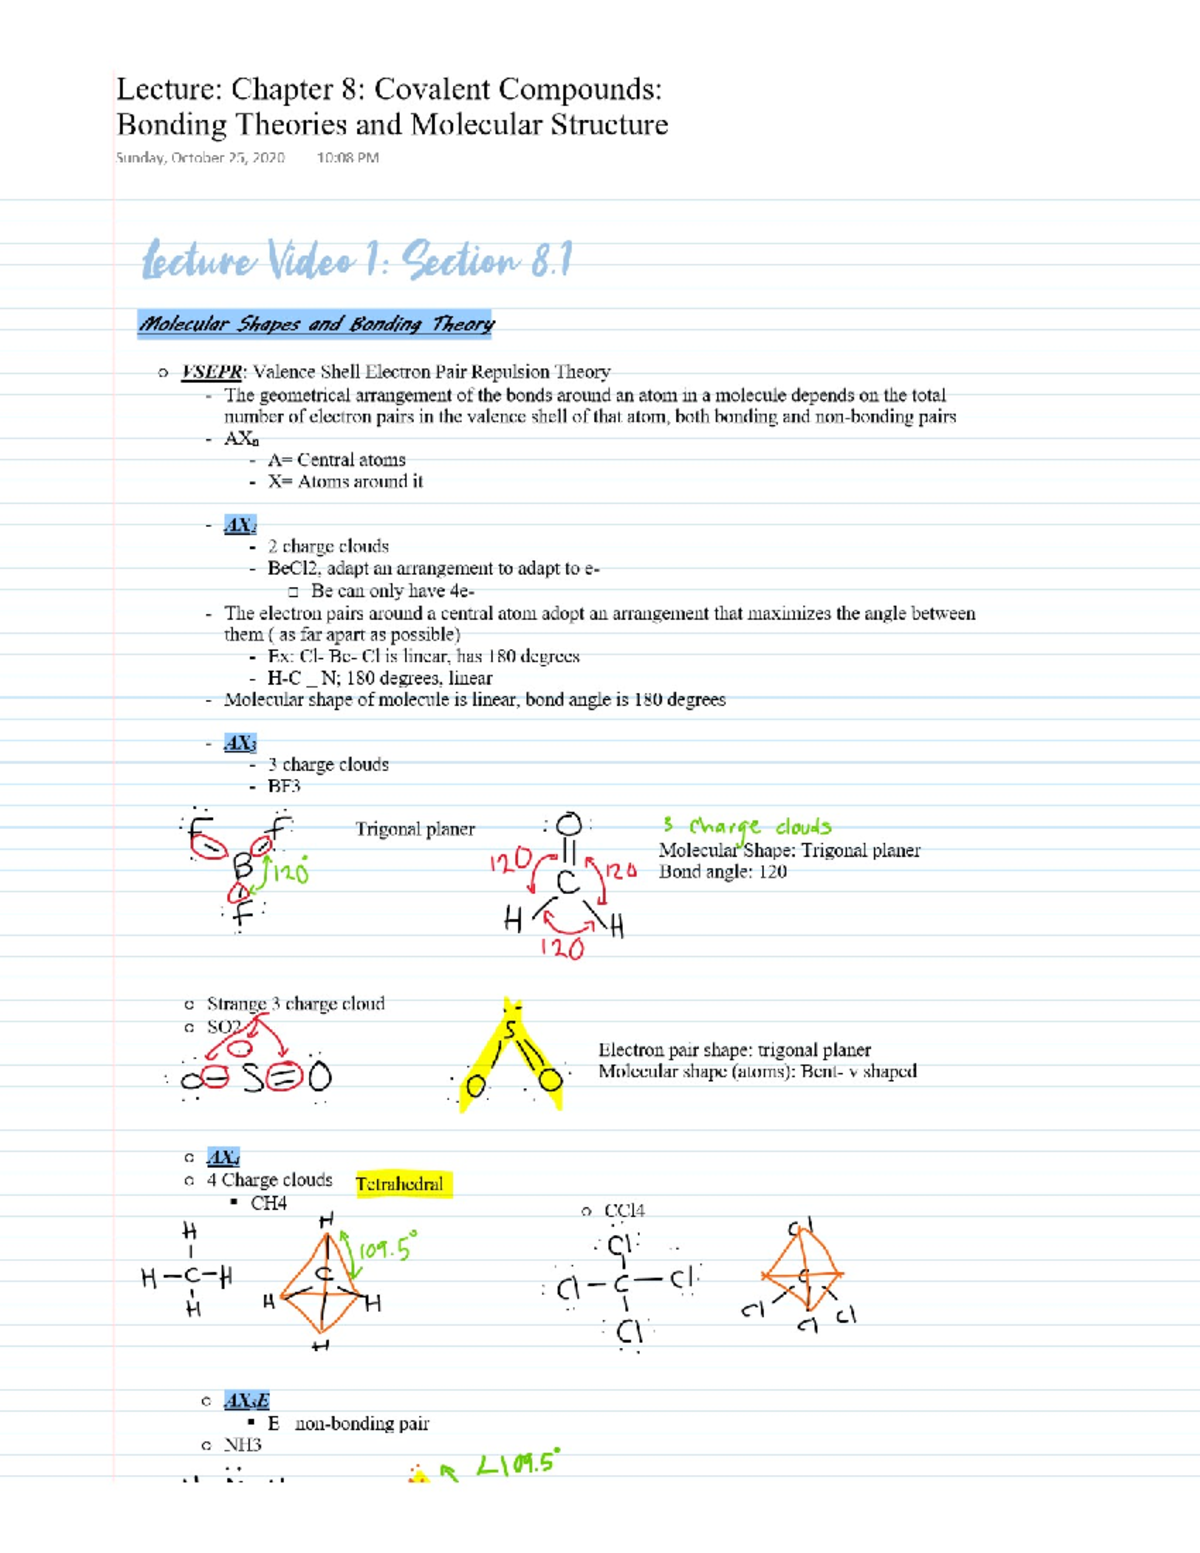 Lecture: Chapter 8: Covalent Compounds:
Bonding Theories and Molecular Structure
Sunday, October 25, 2020 10:08 PM
Lecture Video 1: Section 8.1
Molecular Shapes and Bonding Theory
o VSEPR: Valence Shell Electron Pair Repulsion Theory
- The geometrical arrangement of the bonds around an atom in a molecule depends on the total
number of electron pairs in the valence shell of that atom, both bonding and non-bonding pairs
- AXn
- A= Central atoms
- X= Atoms around it
- AX2
- 2 charge clouds
- BeCl2, adapt an arrangement to adapt to e-
□ Be can only have 4e-
- The electron pairs around a central atom adopt an arrangement that maximizes the angle between
them ( as far apart as possible)
- Ex: Cl- Be- Cl is linear, has 180 degrees
- H-C _ N; 180 degrees, linear
- Molecular shape of molecule is linear, bond angle is 180 degrees
- AX3
- 3 charge clouds
- BF3
F F
B 120°
F
Trigonal planer
O
120 C 120
H H
120
3 charge clouds
Molecular Shape: Trigonal planer
Bond angle: 120
o Strange 3 charge cloud
o SO2
O S O
S
O O
Electron pair shape: trigonal planer
Molecular shape (atoms): Bent- v shaped
o AX4
o 4 Charge clouds Tetrahedral
▪ CH4
H
H-C-H
H
H
109.5°
C
H H
H
o CCl4
Cl
Cl-C-Cl
Cl
Cl
C
Cl Cl Cl
o AX3E
▪ E non-bonding pair
o NH3
∠109.5°